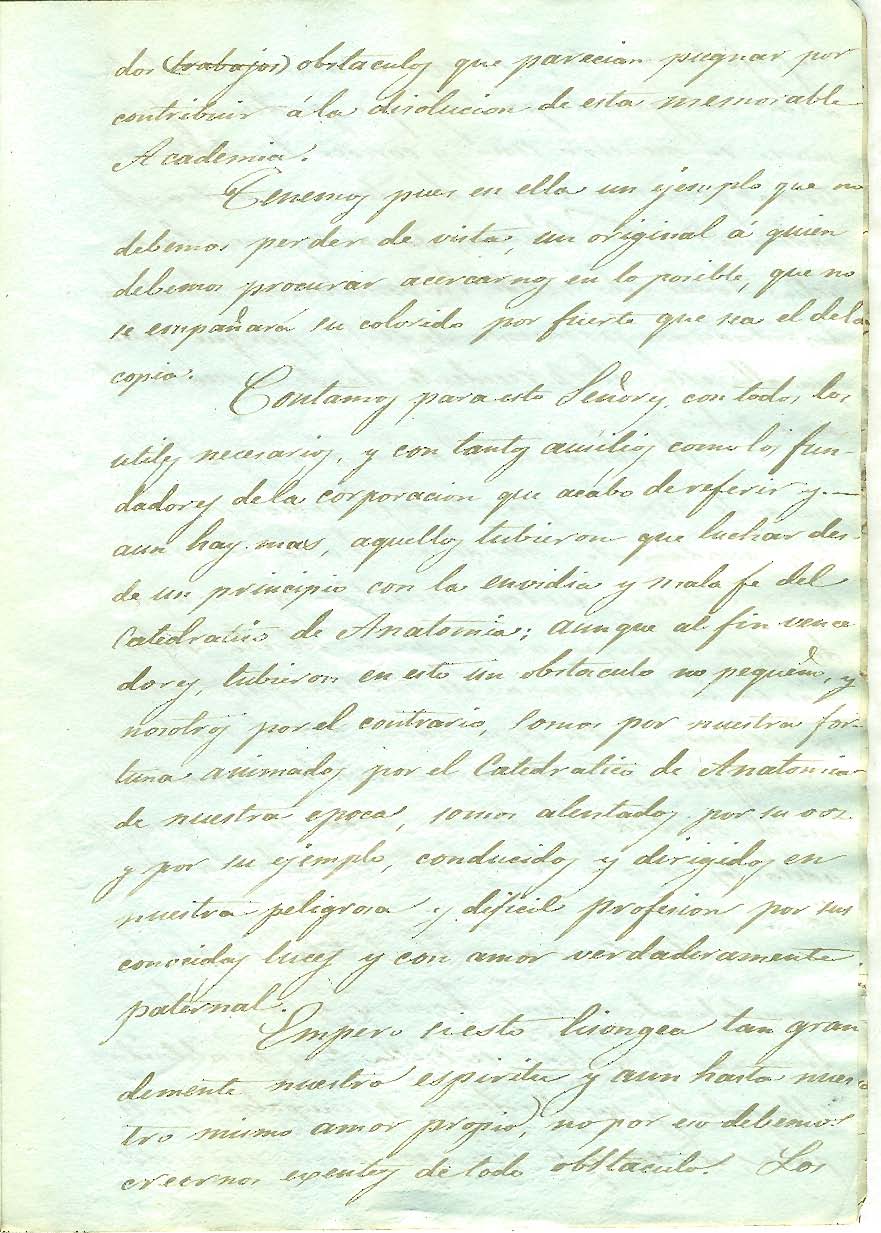 dos (trabajos) obstaculos que parecian pugnar por
contribuir á la disolucion de esta memorable
Academia.
Tenemos pues en ella un ejemplo que no
debemos perder de vista, un original á quien
debemos procurar acercarnos en lo posible, que no
se empañará su colorido por fuerte que sea el de la
copia.
Contamos para esto Señores, con todos los
utiles necesarios, y con tantos ausilios como los fun-
dadores de la corporacion que acábo de referir y
aun hay mas, aquellos tubieron que luchar des-
de un principio con la envidia y mala fe del
Catedratico de Anatomia; aunque al fin vence
dores, tubieron en esto un obstaculo no pequeño, y
nosotros por el contrario, somos por nuestra for-
tuna animados por el Catedratico de Anatomia
de nuestra epoca, somos alentados por su
y por su ejemplo, conducidos y dirigidos en
nuestra peligrosa y dificil profesion por sus
conocidas luces y con amor verdaderamente
paternal.
Empero si esto lisongea tan gran
demente nuestro espiritu y aun hasta nues-
tro mismo amor propio, no por eso debemos
creernos exentos de todo obstaculo. Los